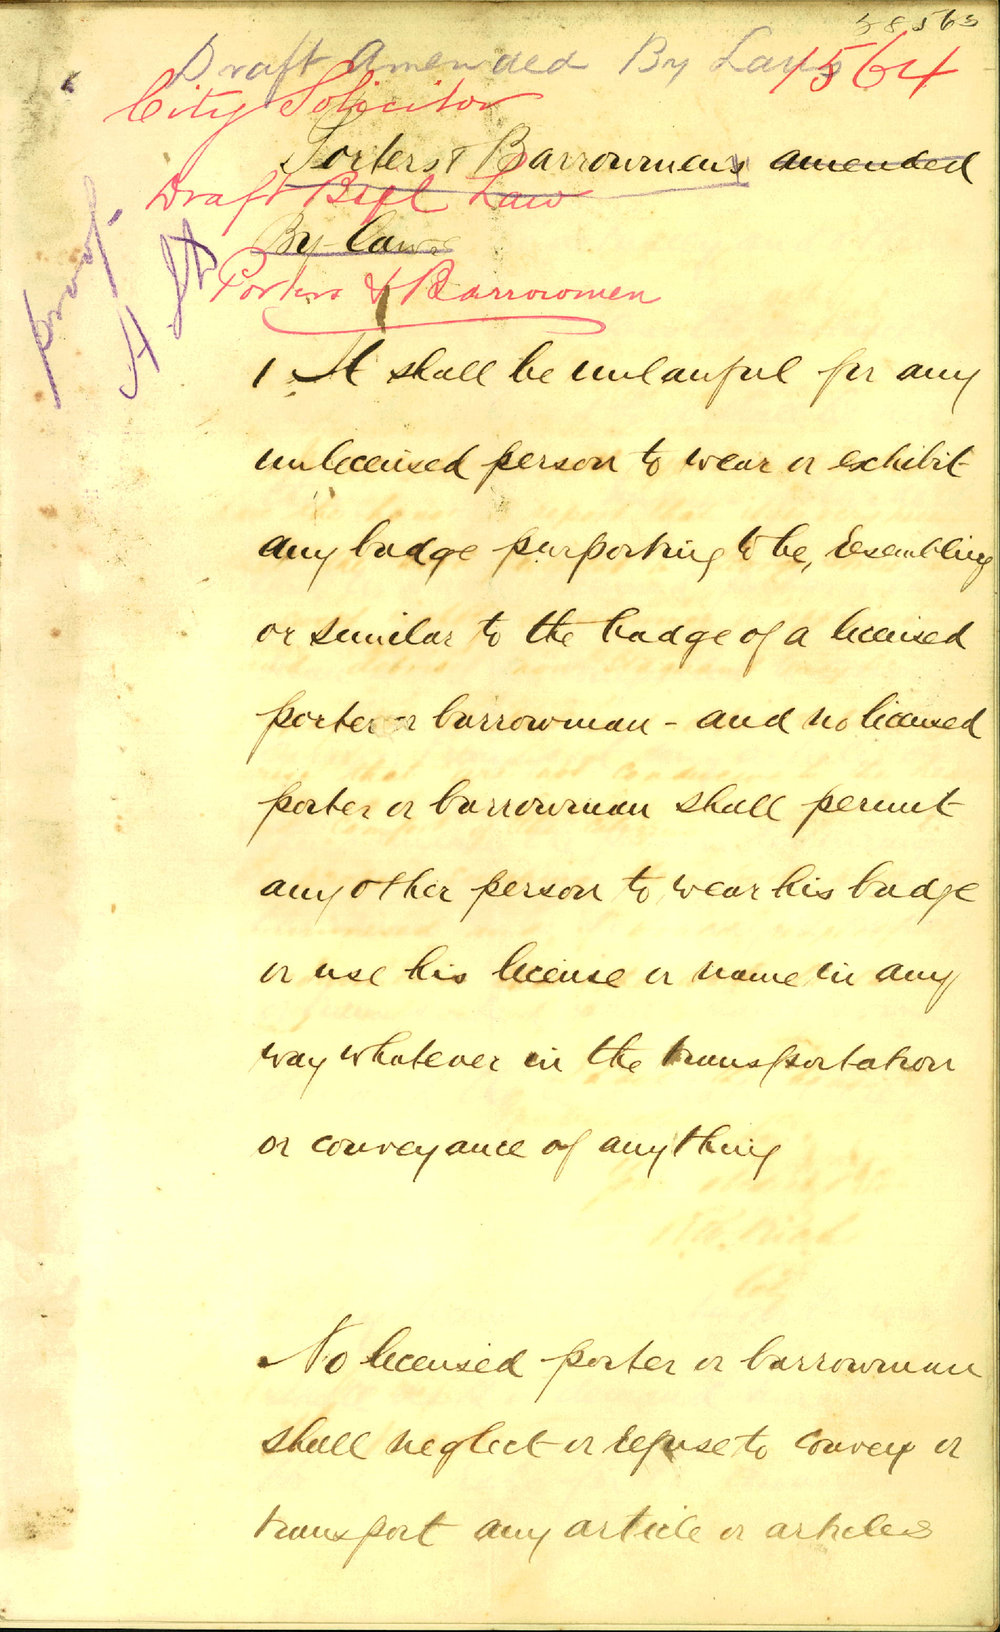 Draft Amended By Laws
1564
City Solicitor
Porters & Barrowmens amended
Draft Bye Law
By-laws
Porters & Barrowmen
Proof
1 It shall be unlawful for any
unlicensed person to wear or exhibit
any badge purporting to be, resembling
or similar to the badge of a licensed
porter or barrowman - and no licensed
porter or barrowman shall permit
any other person to wear his badge
or use his license or name in any
way whatever in the transportation
or conveyance of anything
No licensed porter or barrowman
shall neglect or refuse to convey or
transport any article or articles